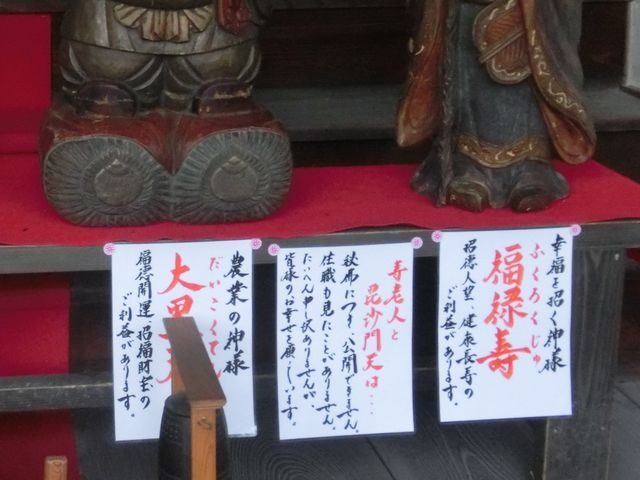 幸福を招く神様
ふくろくじゅ
福禄寿
招徳人望、健康長寿の
ご利益があります。
寿老人と
毘沙門天は...
秘佛につき、公開できません。
住職も見たことがありません。
たいへん申し訳ありませんが、
皆様のお幸せを願っています。
農業の神様
だいこくてん
大黒天
福徳開運、招福財宝の
ご利益があります。